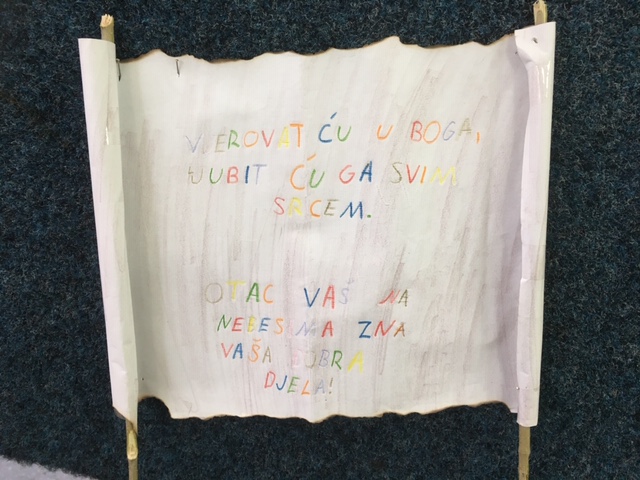 VJEROVAT ĆU U BOGA,
LJUBIT ĆU GA SVIM
SRCEM.
OTAC VAŠ NA
NEBESIMA ZNA
VAŠA DOBRA
DJELA!